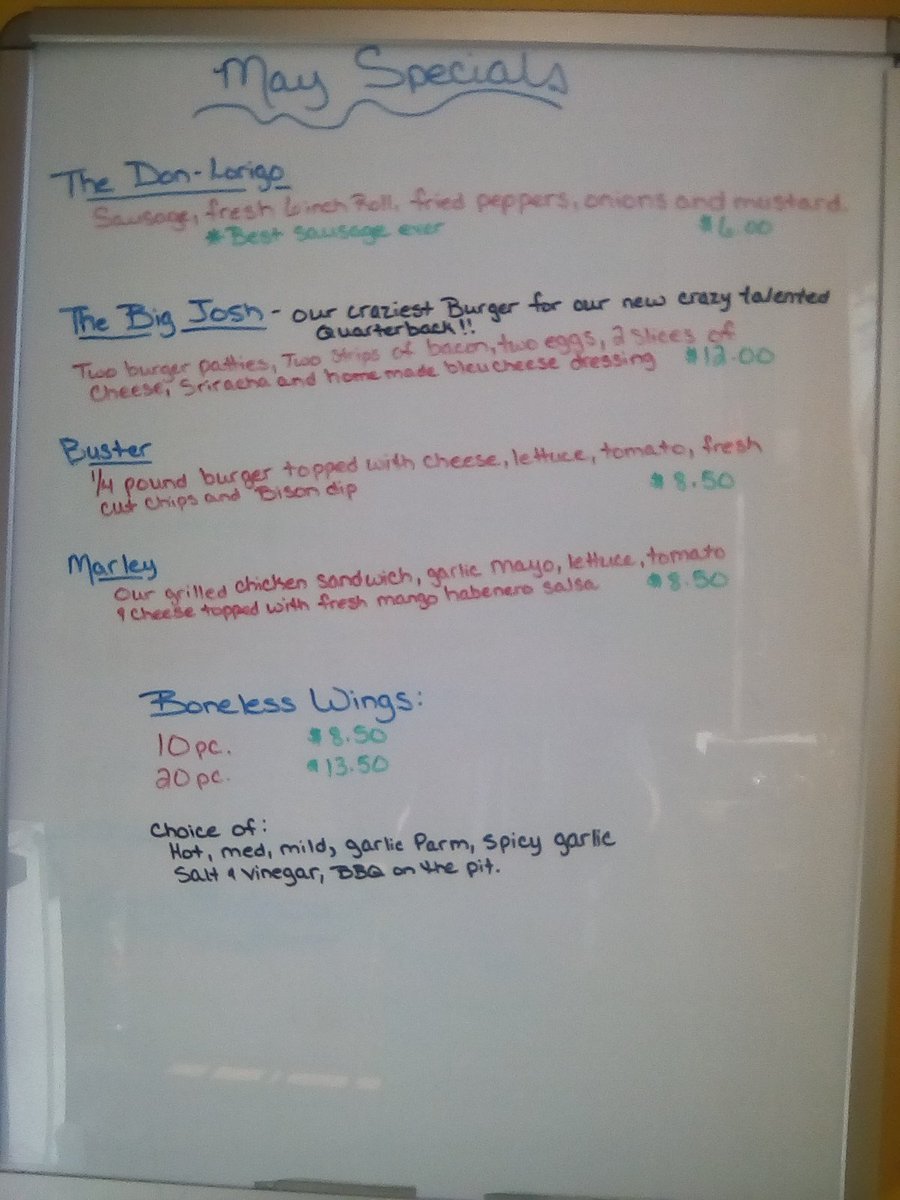 May Specials
The Don-Lorigo
Sausage, fresh 6 inch Roll, fried peppers, onions and mustard.
*Best sausage ever $6.00
The Big Josh - our craziest Burger for our new crazy talented
Quarterback!!
Two burger patties, Two strips of bacon, two eggs, 2 slices of
Cheese, Sriracha and home made bleu cheese dressing $12.00
Buster
1/4 pound burger topped with cheese, lettuce, tomato, fresh
cut chips and Bison dip $8.50
Marley
Our grilled chicken sandwich, garlic mayo, lettuce, tomato
& cheese topped with fresh mango habenero salsa $8.50
Boneless Wings:
10 pc. $8.50
20 pc. $13.50
Choice of:
Hot, med, mild, garlic Parm, spicy garlic
Salt & vinegar, BBQ on the pit.